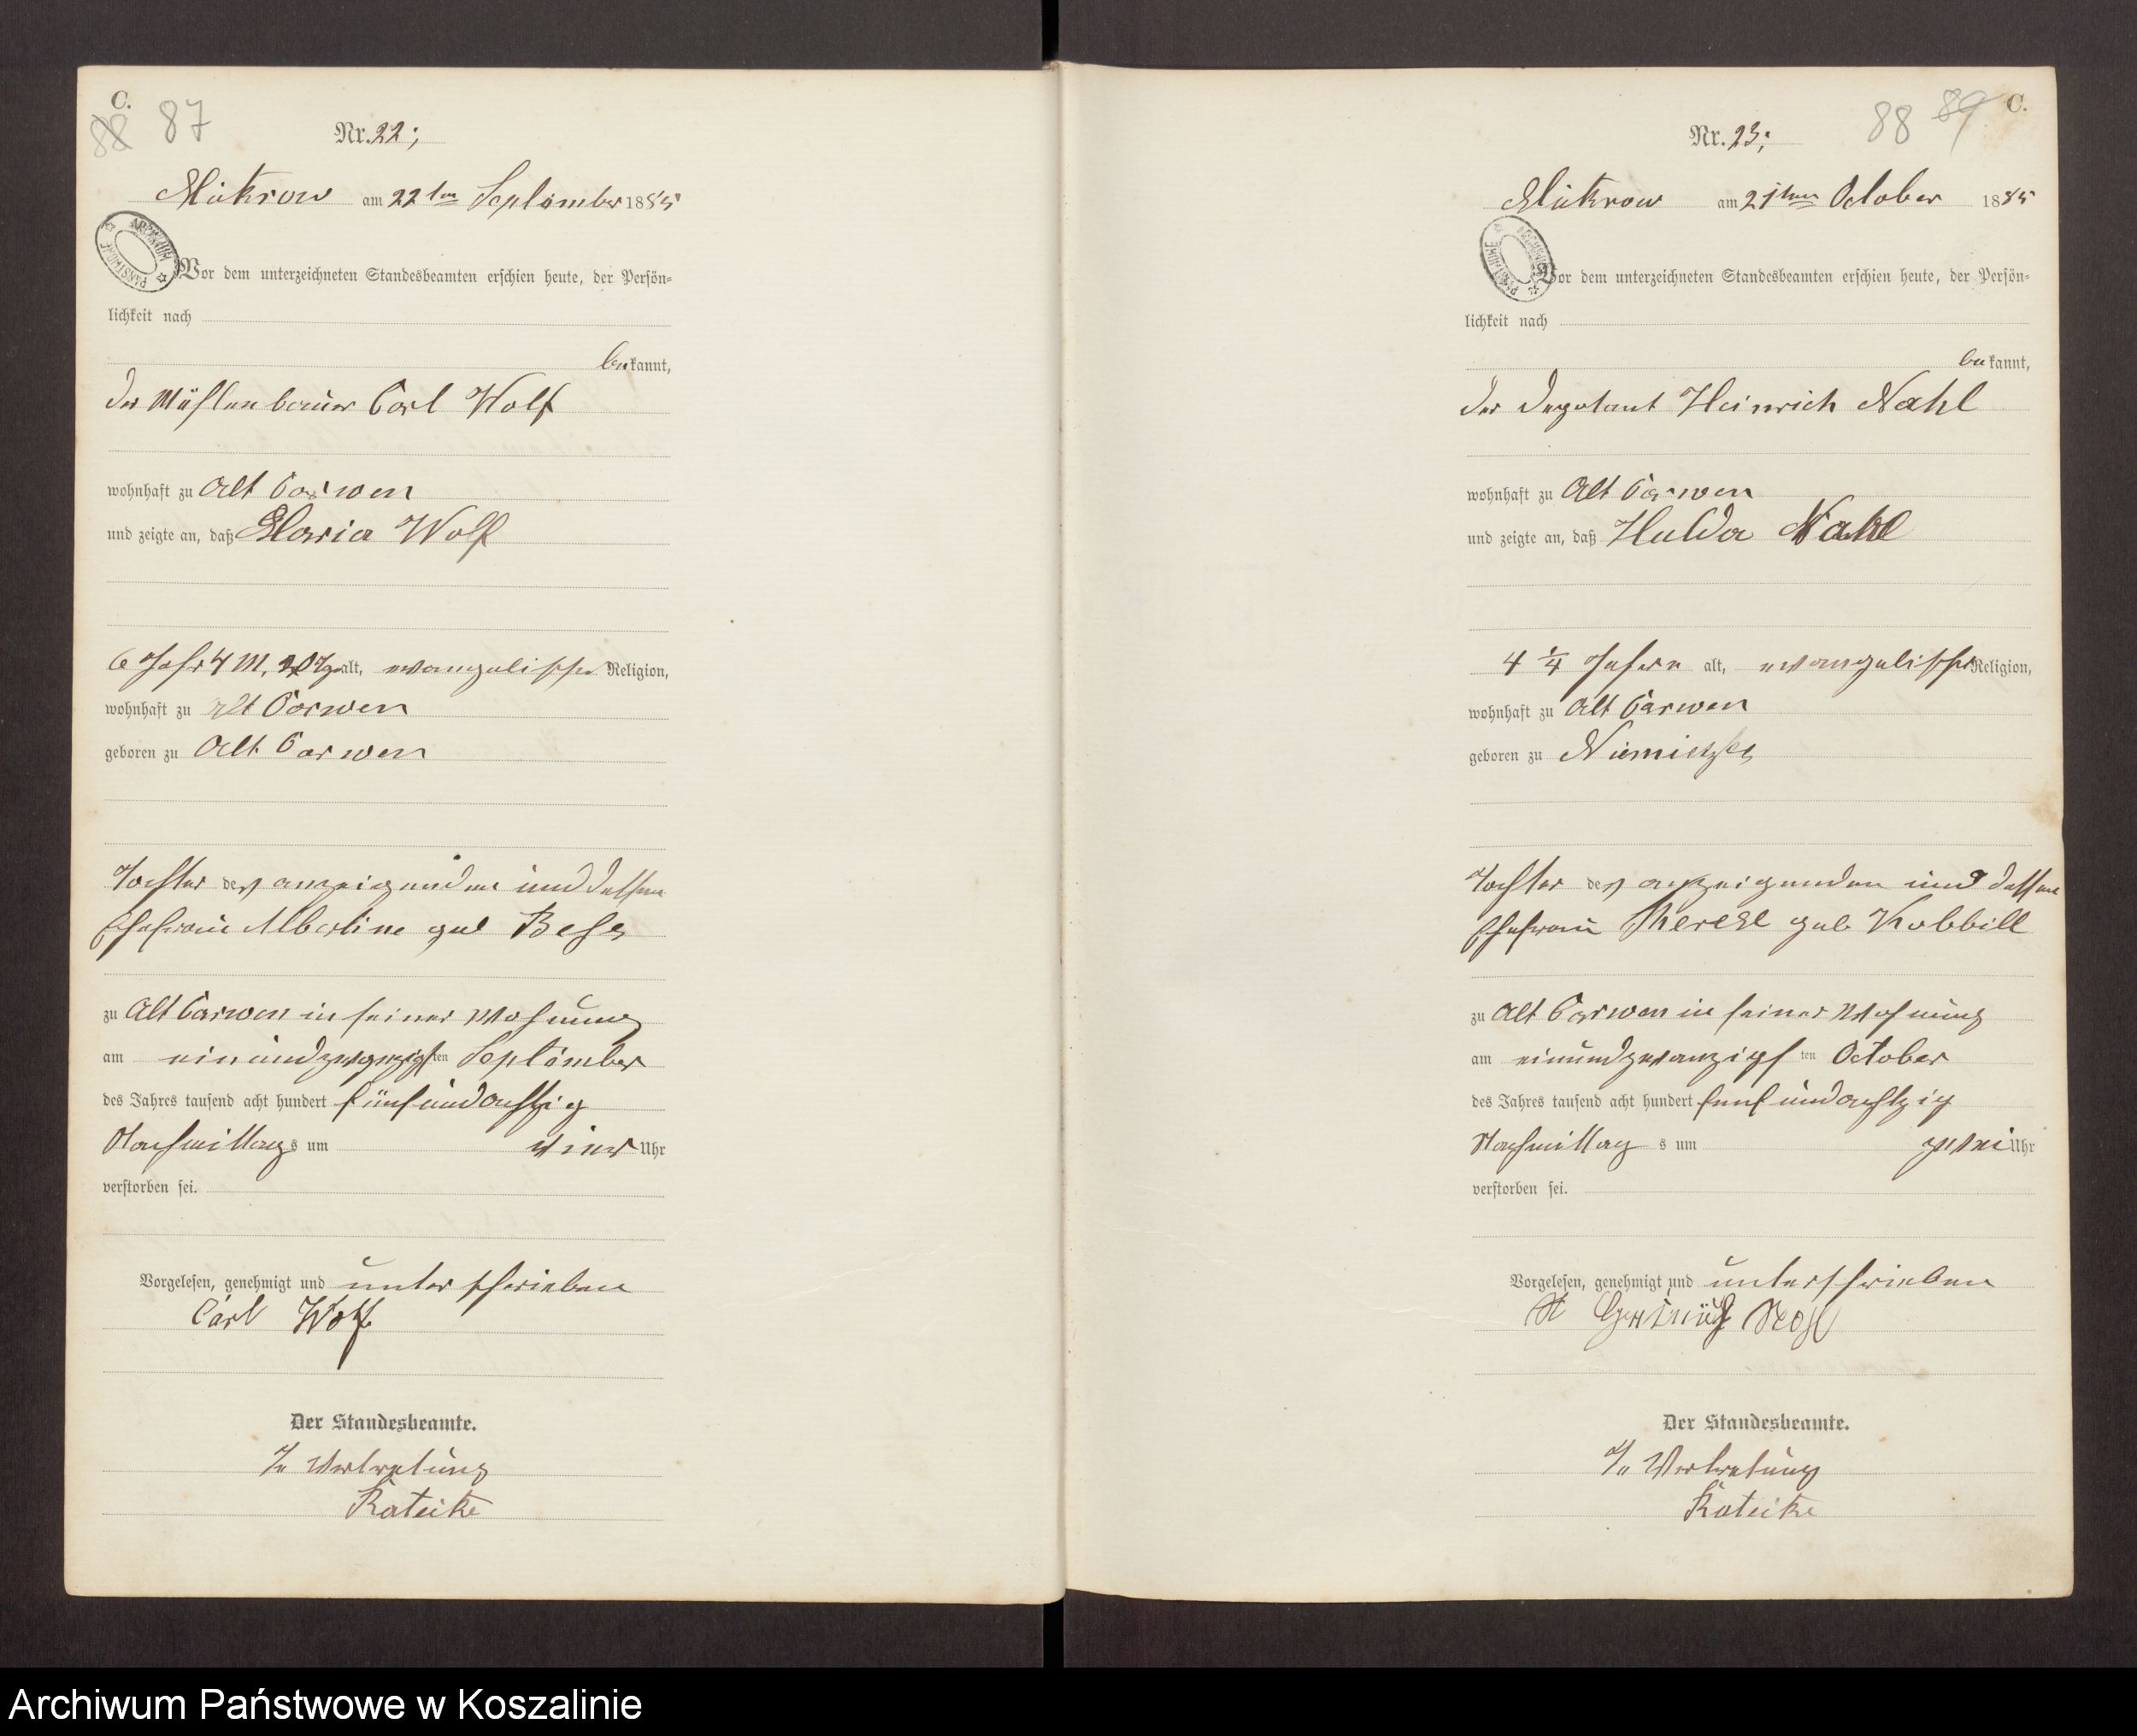 C.
88 87
Nr. 22;
Mickrow am 22ten September 1885
ARCHIWUM PAŃSTWOWE
Vor dem unterzeichneten Standesbeamten erschien heute, der Persön=
lichkeit nach
bekannt,
der Mühlenbauer Carl Wolf
wohnhaft zu Alt Carwen
und zeigte an, daß Maria Wolf
6 Jahr 4 M, alt, evangelischer Religion,
wohnhaft zu Alt Carwen
geboren zu Alt Carwen
Tochter des anzeigenden und dessen
Ehefrau Albertine geb
zu Alt Carwen in seiner Wohnung
am einundzwanzigsten September
des Jahres tausend acht hundert fünfundachtzig
Nachmittags um vier Uhr
verstorben sei.
Vorgelesen, genehmigt und unterschrieben
Carl Wolf
Der Standesbeamte.
In Vertretung
Rateike
88 89 C.
Nr. 23;
Mickrow am 21ten October 1885
ARCHIWUM PAŃSTWOWE
Vor dem unterzeichneten Standesbeamten erschien heute, der Persön=
lichkeit nach
bekannt,
der Deputant Heinrich Nahl
wohnhaft zu Alt Carwen
und zeigte an, daß Hulda Nahl
4 1/4 Jahre alt, evangelischer Religion,
wohnhaft zu Alt Carwen
geboren zu Niemietzke
Tochter des anzeigenden und dessen
Ehefrau Therese geb Kobbill
zu Alt Carwen in seiner Wohnung
am einundzwanzigsten October
des Jahres tausend acht hundert fünfundachtzig
Nachmittags um zwei Uhr
verstorben sei.
Vorgelesen, genehmigt und unterschrieben
Heinrich Nahl
Der Standesbeamte.
In Vertretung
Rateike
Archiwum Państwowe w Koszalinie